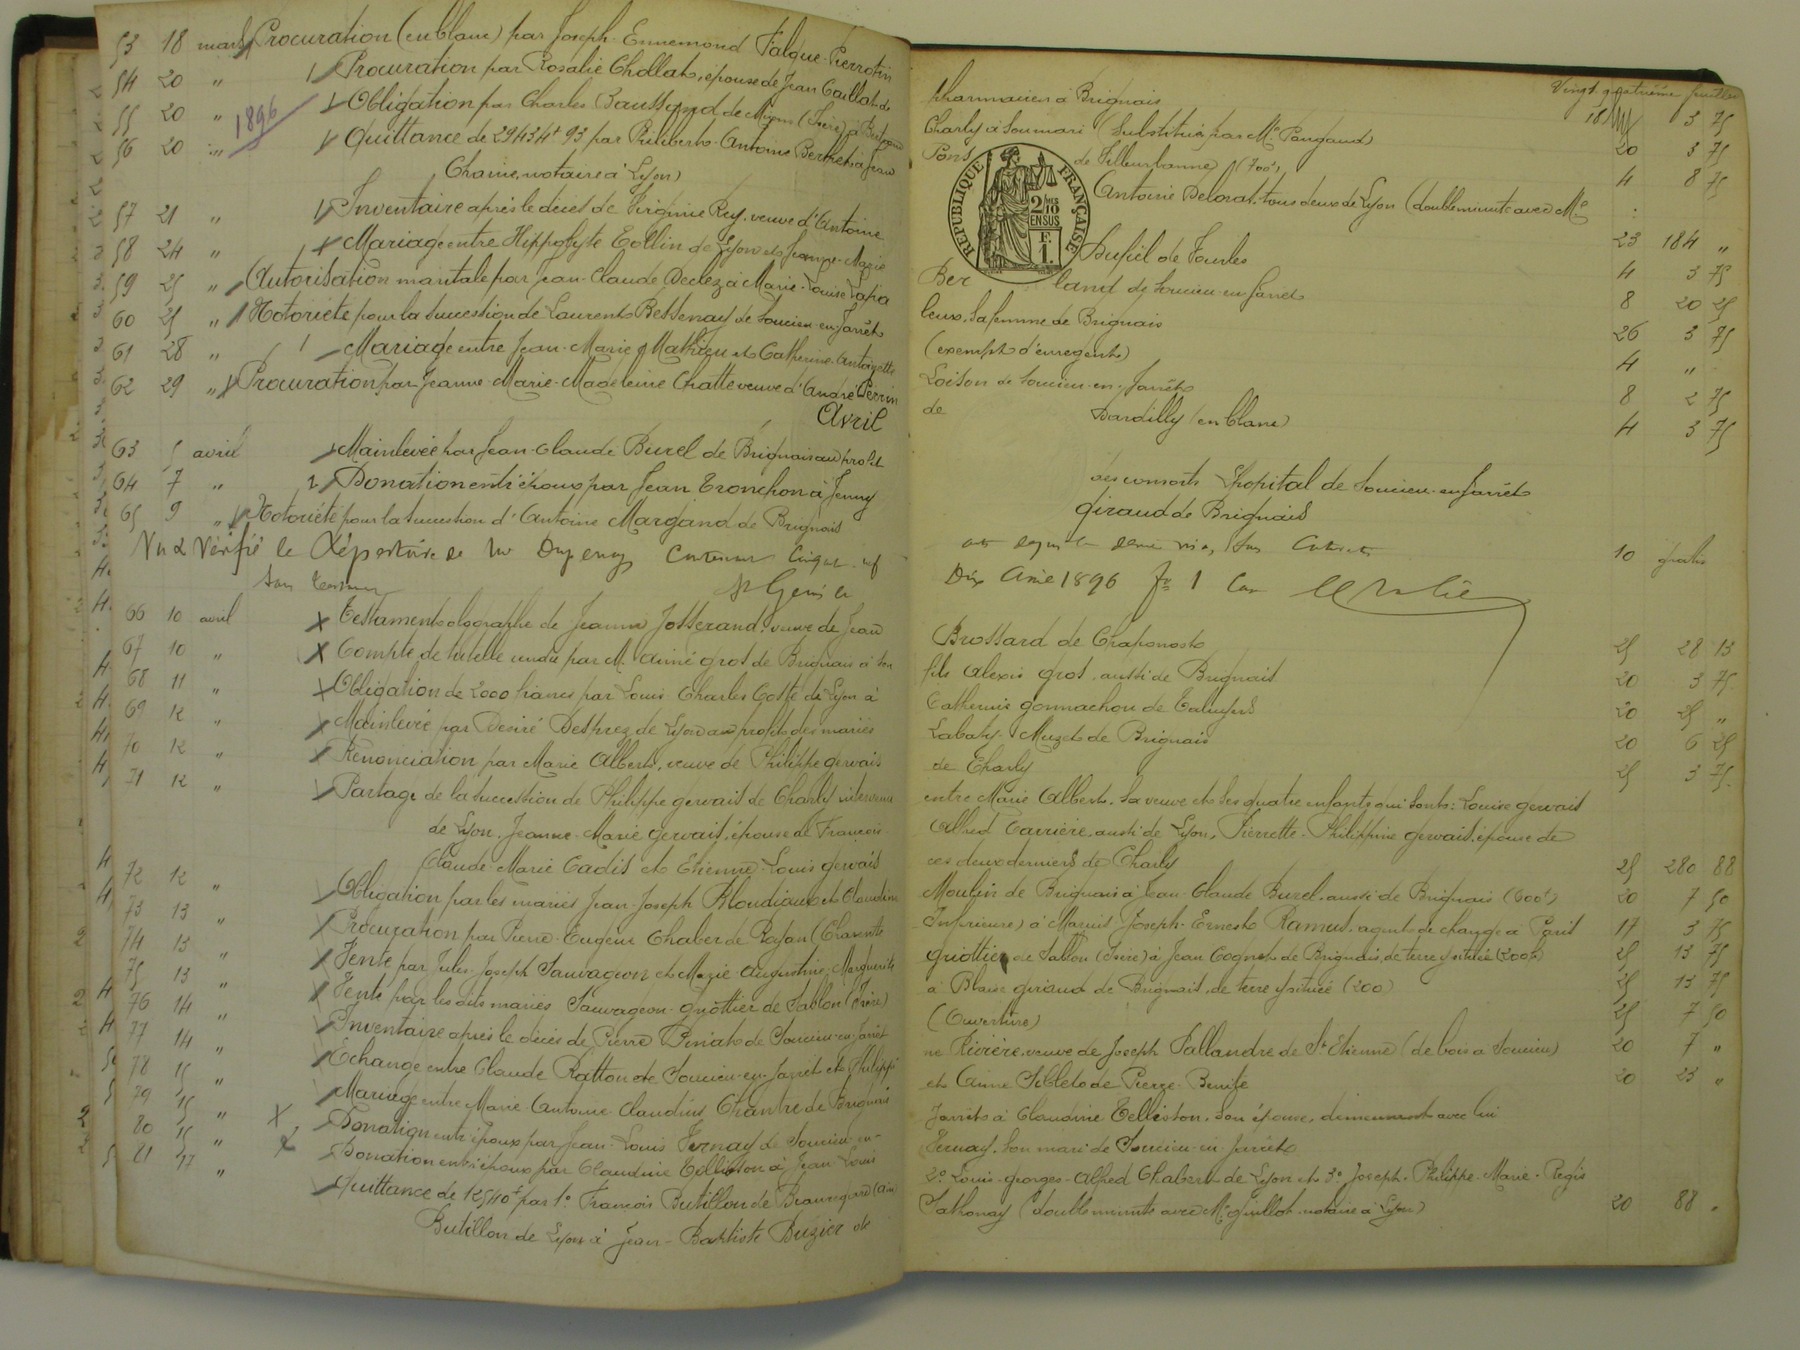 53 18 mars Procuration (en blanc) par Joseph-Ennemond Falque-Pierrotin
54 20 " Procuration par Rosalie Chollat, épouse de Jean Gaillat de
55 20 " Obligation par Charles Baussand de Mions (Isère) à
1896
56 20 " Quittance de 29434f 93 par Philibert-Antoine Berthet à Jean
Chaine, notaire à Lyon)
57 21 " Inventaire après le décès de Virginie Rey, veuve d'Antoine
58 24 " Mariage entre Hippolyte Collin de Lyon et Jeanne-Marie
59 25 " Autorisation maritale par Jean-Claude Declez à Marie-Louise
60 25 " Notoriété pour la succession de Laurent Bessenay de Soucieu-en-Jarrêt
61 28 " Mariage entre Jean-Marie Mathieu et Catherine-Antoinette
62 29 " Procuration par Jeanne-Marie-Madeleine Chatte veuve d'André Perrin
Avril
63 5 avril Mainlevée par Jean-Claude Burel de Brignais au profit
64 7 " Donation entre époux par Jean Tronchon à Jenny
65 9 " Notoriété pour la succession d'Antoine Margand de Brignais
Vu & Vérifié le Répertoire de
St Genis
66 10 avril Testament olographe de Jeanne Josserand, veuve de Jean
67 10 " Compte de tutelle rendu par M. Aimé Gros de Brignais à son
68 11 " Obligation de 2000 francs par Louis Charles Coste de Lyon à
69 12 " Mainlevée par Désiré Desprez de Lyon au profit des mariés
70 12 " Renonciation par Marie Albert, veuve de Philippe Gervais
71 12 " Partage de la succession de Philippe Gervais de Charly intervenu
de Lyon, Jeanne-Marie Gervais, épouse de François
Claude Marie Cadis et Etienne-Louis Gervais
72 12 " Obligation par les mariés Jean-Joseph Bloudiaux et Claudine
73 13 " Procuration par Pierre-Eugène Chaber de Royan (Charente
74 13 " Vente par Jules-Joseph Sauvageon et Marie-Augustine-Marguerite
75 13 " Vente par les dits mariés Sauvageon-Griottier de Sablon (Isère)
76 14 " Inventaire après le décès de Pierre de Soucieu-en-Jarrêt
77 14 " Echange entre Claude Ratton de Soucieu-en-Jarrêt et Philippe
78 15 " Mariage entre Marie Antoine Claudius Chantre de Brignais
79 15 " Donation entre époux par Jean-Louis Fernay de Soucieu-en-
80 15 " Donation entre époux par Claudine Telliston à Jean Louis
81 17 " Quittance de 12540f par 1o François Butillon de Beauregard (Ain)
Butillon de Lyon à Jean-Baptiste Buzier de
Vingt quatrième feuillet
pharmacien à Brignais 18 3 75
Charly à Soumari (Substitué par Me Pangaud) 20 3 75
Pons de Villeurbanne) (700f) 4 8 75
RÉPUBLIQUE FRANÇAISE
2/10 EN SUS
F. 1.
Antoine Delorat, tous deux de Lyon (double minute avec Me
23 184 "
Dupiel de Tourles 4 3 75
Ber land de Soucieu-en-Jarrêt 8 20 25
leux, sa femme de Brignais 26 3 75
(exempt d'enregent) 4 "
Loison de Soucieu-en-Jarrêt 8 2 75
de Dardilly (en blanc) 4 3 75
des consorts Hopital de Soucieu-en-Jarrêt
Giraud de Brignais
10 gratis
Dix Avril 1896
Brossard de Chaponost 25 28 13
fils Alexis Gros, aussi de Brignais 20 3 75
Catherine Gonnachon de Taluyers 20 25 "
Labaty-Muzet de Brignais 20 6 25
de Charly 25 3 75
entre Marie Albert, sa veuve et ses quatre enfants qui sont: Louise Gervais
Alfred Carrière, aussi de Lyon, Pierrette-Philippine Gervais, épouse de
ces deux derniers de Charly 25 280 88
Moulin de Brignais à Jean-Claude Burel, aussi de Brignais (600f) 20 7 50
Inférieure) à Marius-Joseph-Ernest Ramus, agent de change à Paris 17 3 75
Griottier de Sablon (Isère) à Jean Cognet de Brignais, de terre y située (200f) 25 13 75
à Blaise Giraud de Brignais, de terre y située (200) 25 13 75
(Ouverture) 25 7 50
ne Rivière, veuve de Joseph Vallandre de St Etienne (de bois à Soucieu) 20 7 "
et Anne Siblet de Pierre-Bénite 20 23 "
Jarrêt à Claudine Telliston, son épouse, demeurant avec lui
Fernay, son mari de Soucieu-en-Jarrêt
2o Louis-Georges-Alfred Chabert de Lyon et 3o Joseph-Philippe-Marie-Régis
Sathonay (double minute avec Me Guillot notaire à Lyon) 20 88 "